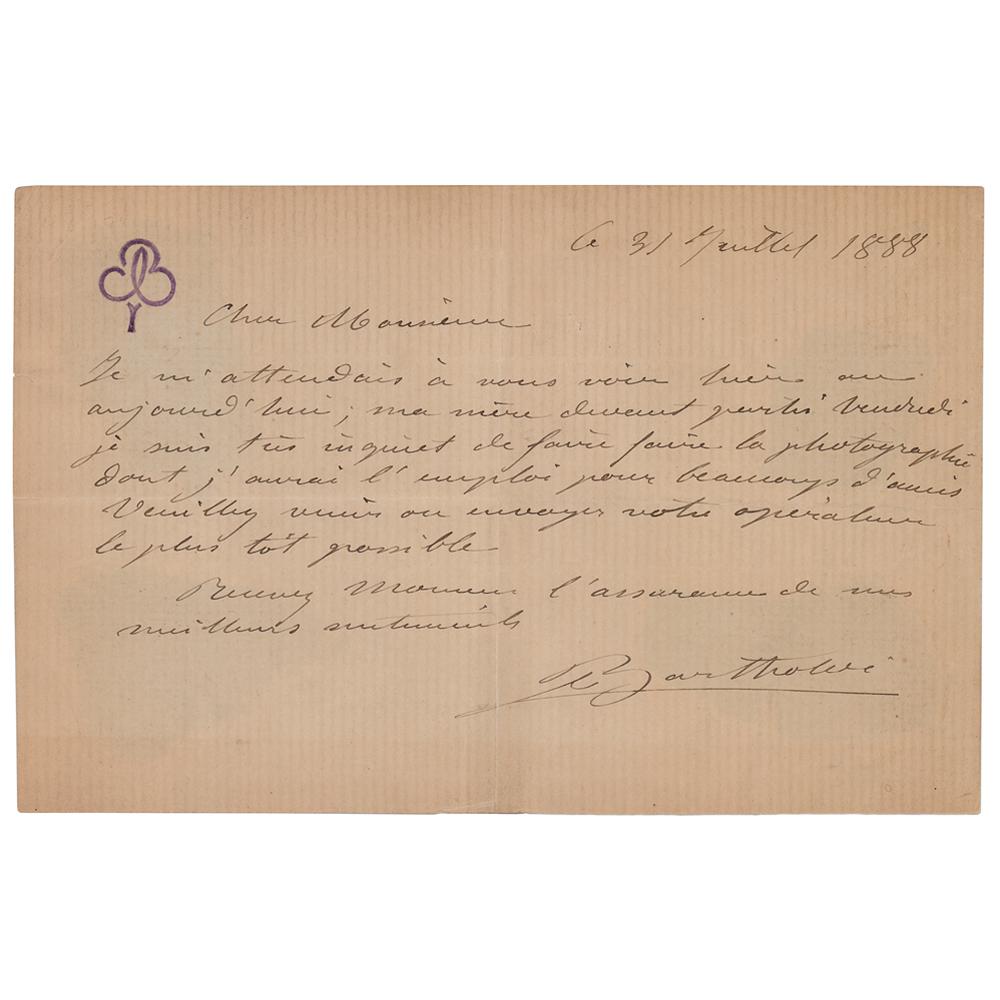 Ce 31 Juillet 1888
Cher Monsieur
Je m'attendais à vous voir hier ou
aujourd'hui; ma mère devant partir Vendredi
je suis très inquiet de faire faire la photographie
dont j'aurai l'emploi pour beaucoup d'amis
Veuillez venir ou envoyer votre opérateur
le plus tôt possible
Recevez Monsieur l'assurance de mes
meilleurs sentiments
Bartholdi